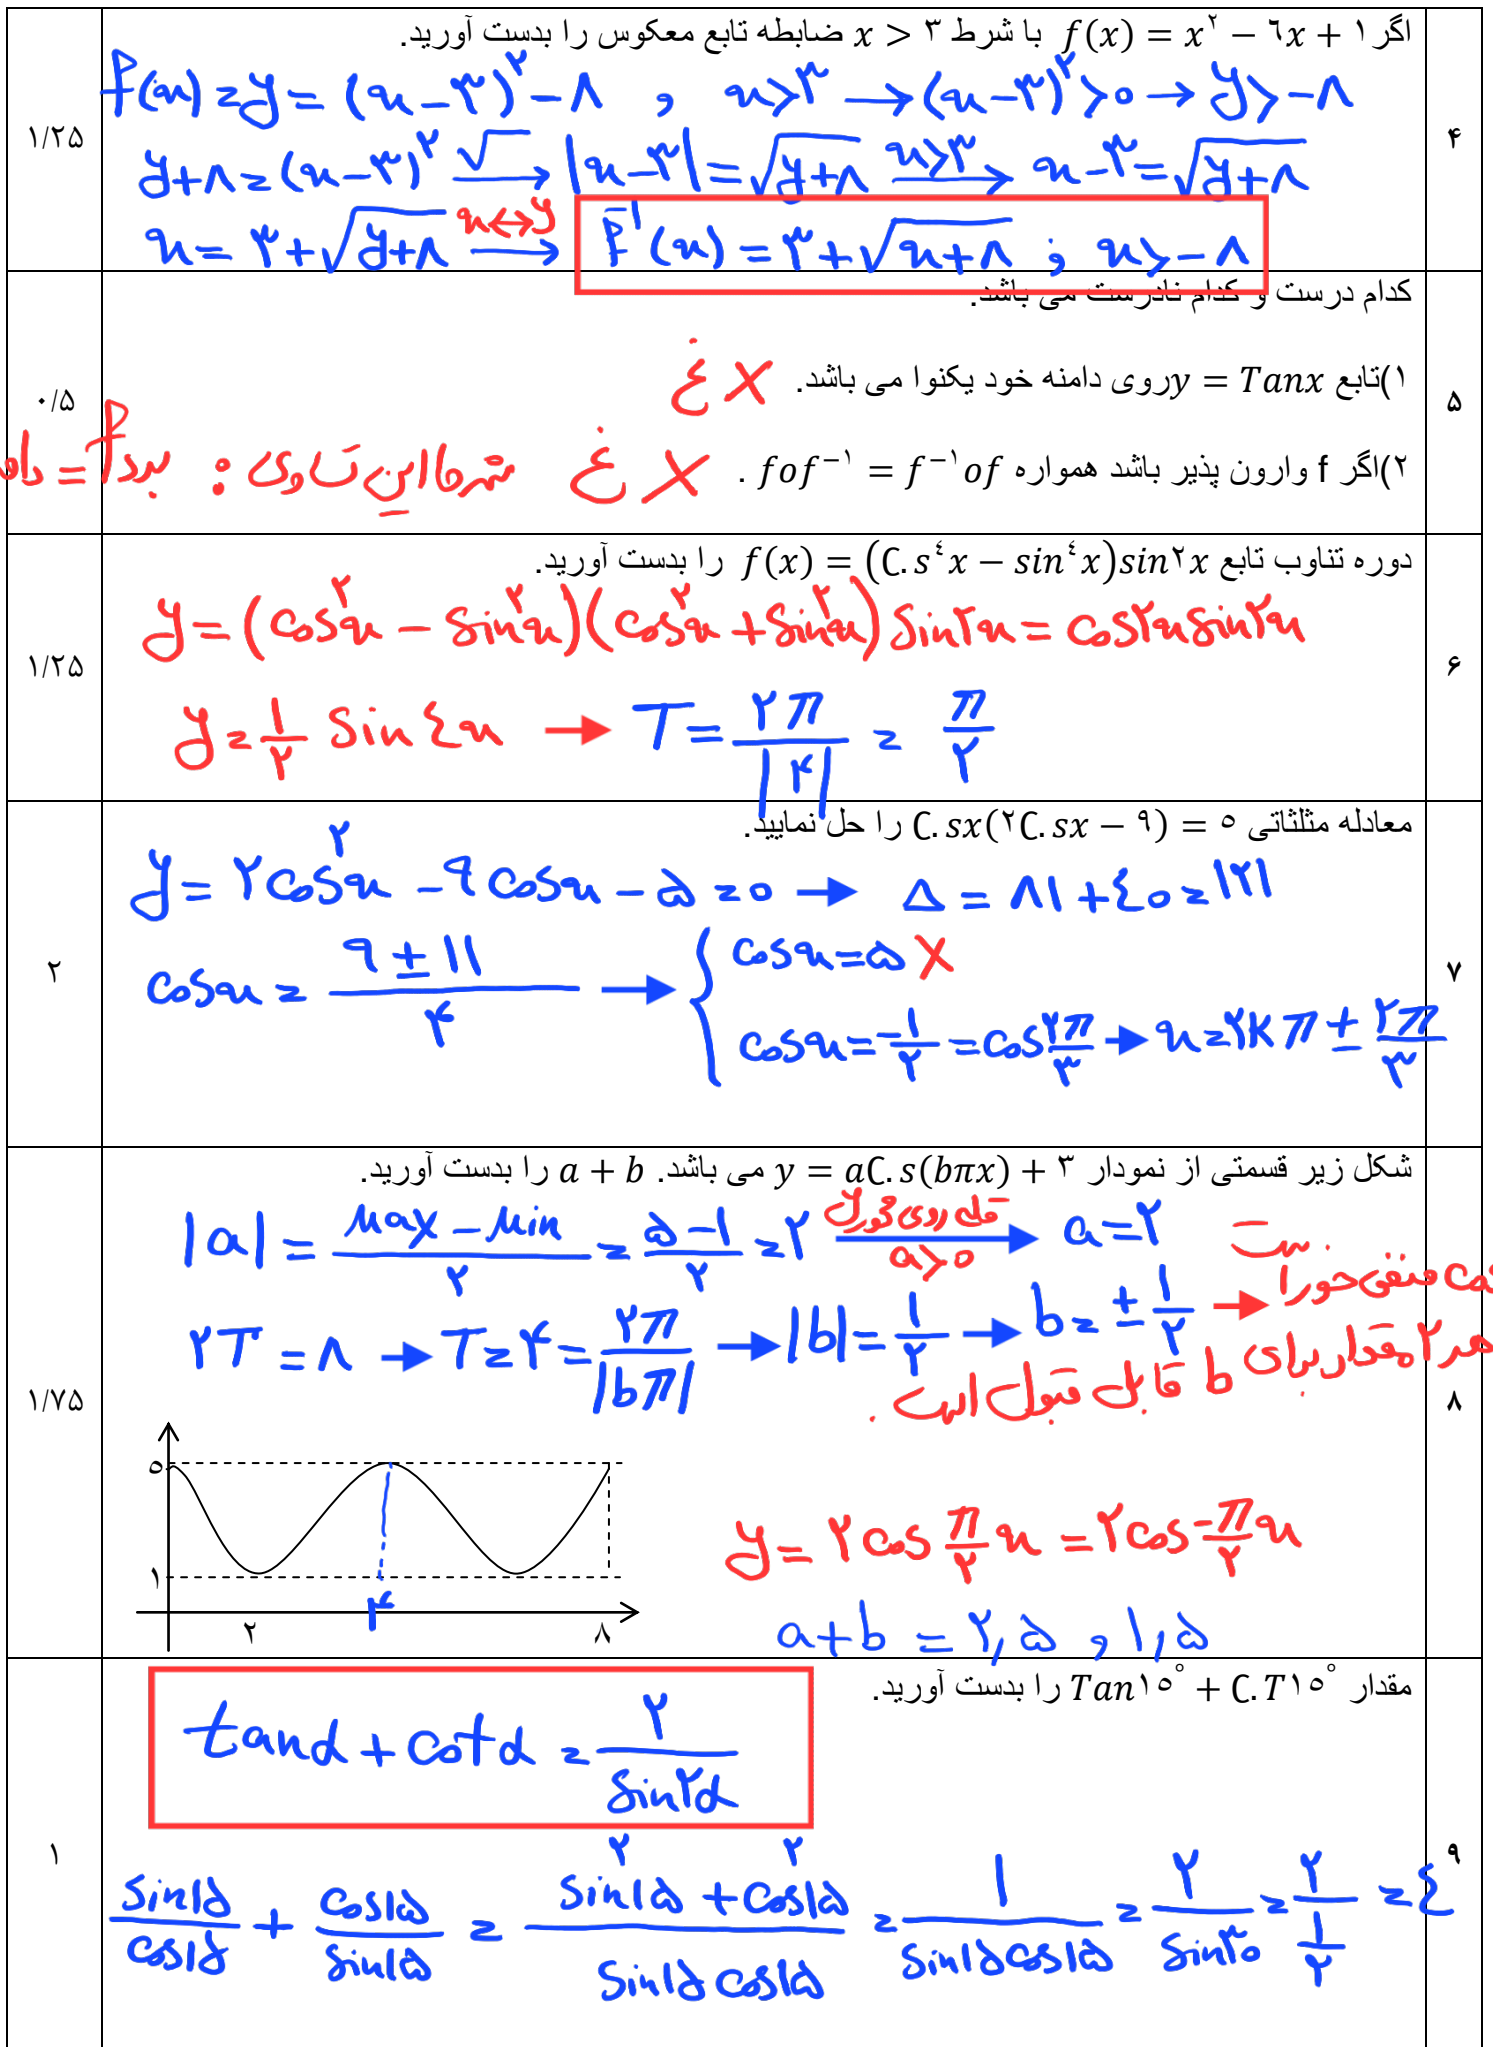 ۴
اگر f(x) = x² − ٦x + ١ با شرط x > ٣ ضابطه تابع معکوس را بدست آورید.
f(x) = y = (x − ۳)² − ۸ , x > ۳ → (x − ۳)² > ۰ → y > −۸
y + ۸ = (x − ۳)² √→ |x − ۳| = √(y + ۸) x>۳→ x − ۳ = √(y + ۸)
x = ۳ + √(y + ۸) x↔y→ f⁻¹(x) = ۳ + √(x + ۸) ; x > −۸
۱/۲۵
۵
کدام درست و کدام نادرست می باشد.
۱)تابع y = Tanx روی دامنه خود یکنوا می باشد. X غ
۲)اگر f وارون پذیر باشد همواره fof⁻¹ = f⁻¹of . X غ شرط این تساوی : برد f = دام
۰/۵
۶
دوره تناوب تابع f(x) = (C.s⁴x − sin⁴x)sin۲x را بدست آورید.
y = (cos²x − sin²x)(cos²x + sin²x) sin۲x = cos۲x sin۲x
y = ۱/۲ sin ۴x → T = ۲π/|۴| = π/۲
۱/۲۵
۷
معادله مثلثاتی C.sx(۲C.sx − ۹) = ٥ را حل نمایید.
y = ۲cos²x − ۹cosx − ۵ = ۰ → Δ = ۸۱ + ۴۰ = ۱۲۱
cosx = (۹ ± ۱۱)/۴ → { cosx = ۵ X
cosx = −۱/۲ = cos ۲π/۳ → x = ۲kπ ± ۲π/۳
۲
۸
شکل زیر قسمتی از نمودار y = aC.s(bπx) + ۳ می باشد. a + b را بدست آورید.
|a| = (Max − Min)/۲ = (۵ − ۱)/۲ = ۲ قله روی محور y a>۰ → a = ۲
۲T = ۸ → T = ۴ = ۲π/|bπ| → |b| = ۱/۲ → b = ± ۱/۲ → cos منفی خور است
هر ۲ مقدار برای b قابل قبول است .
۱/۷۵
٥
۱
۲
۴
۸
y = ۲cos π/۲ x = ۲cos −π/۲ x
a + b = ۲,۵ , ۱,۵
۹
مقدار Tan۱٥° + C.T۱٥° را بدست آورید.
tanα + cotα = ۲/sin۲α
sin۱۵/cos۱۵ + cos۱۵/sin۱۵ = (sin²۱۵ + cos²۱۵)/(sin۱۵ cos۱۵) = ۱/(sin۱۵cos۱۵) = ۲/sin۳۰ = ۲/(۱/۲) = ۴
۱